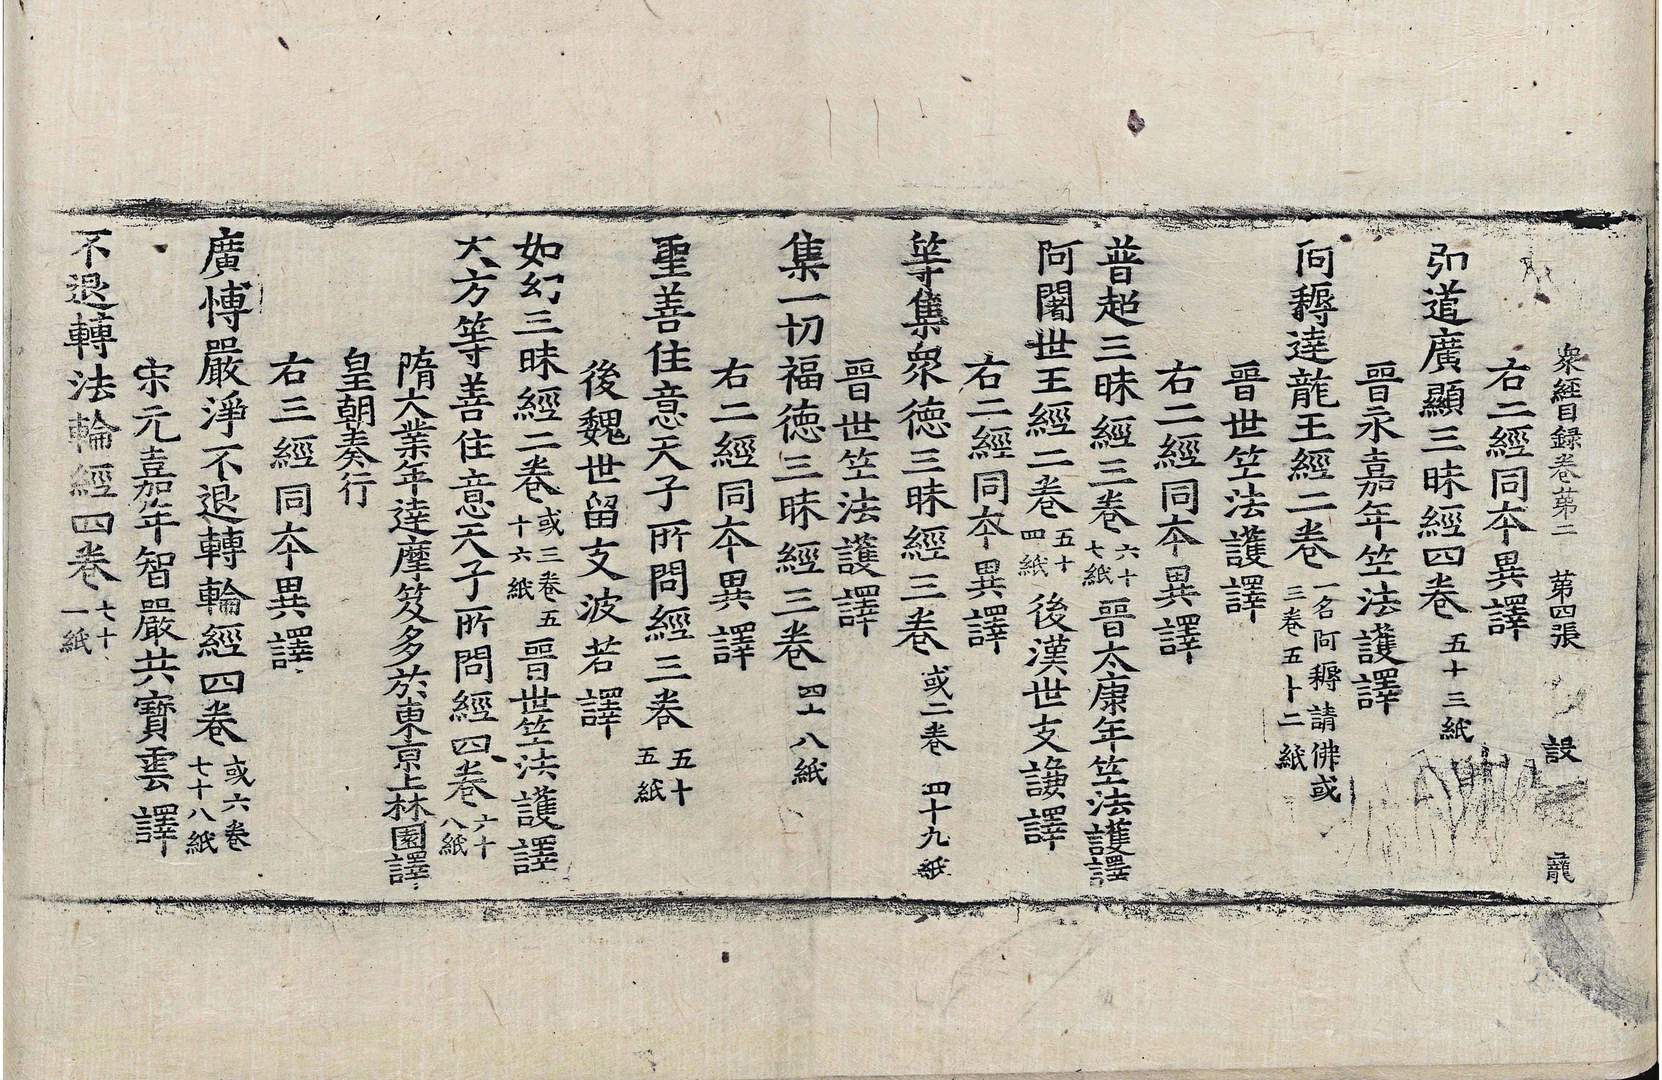 衆經目録卷第二 第四張 設 龍
右二經同本異譯
弘道廣顯三昧經四卷 五十三紙
晉永嘉年竺法護譯
阿耨達龍王經二卷 一名阿耨請佛或三卷五十二紙
晉世竺法護譯
右二經同本異譯
普超三昧經三卷 六十七紙 晉太康年竺法護譯
阿闍世王經二卷 五十四紙 後漢世支謙譯
右二經同本異譯
等集衆德三昧經三卷 或二卷 四十九紙
晉世竺法護譯
集一切福德三昧經三卷 四十八紙
右二經同本異譯
聖善住意天子所問經三卷 五十五紙
後魏世留支波若譯
如幻三昧經二卷 或三卷五十六紙 晉世竺法護譯
大方等善住意天子所問經四卷 六十八紙
隋大業年達摩笈多於東京上林園譯
皇朝奏行
右三經同本異譯
廣愽嚴淨不退轉輪經四卷 或六卷七十八紙
宋元嘉年智嚴共寶雲譯
不退轉法輪經四卷 七十一紙